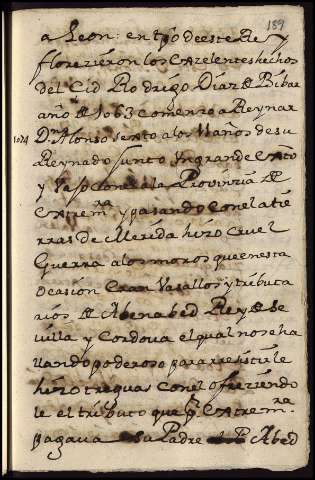 189
a Leon: en tpo deeste Rey
florezieron los exzelentes hechos
del Cid Rodrigo Diaz de Bibar
año de 1063 comenzo a Reynar
1074
Dn Alonso sexto a los 11 años de su
Reynado junto Ungrande exto
y Vajo con el a la Provinzia de
Extremra y pasando con el a tie
rras de Merida hizo cruel
Guerra a los moros que en esta
ocasion Eran Vasallos y tributa
rios de Abenabed Rey de Se
villa y Cordova el qual no se ha
llando poderoso para resistirle
hizo treguas con el ofreziendo
le el tributo que pr Extremra
pagava a su Padre Abed